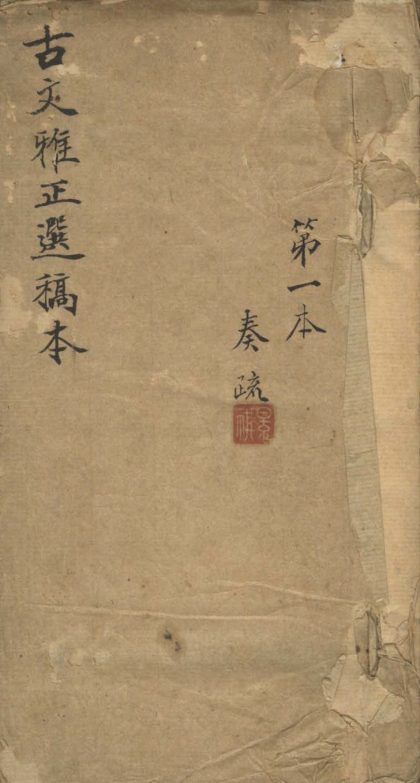 古文雅正選稿本
第一本
奏疏